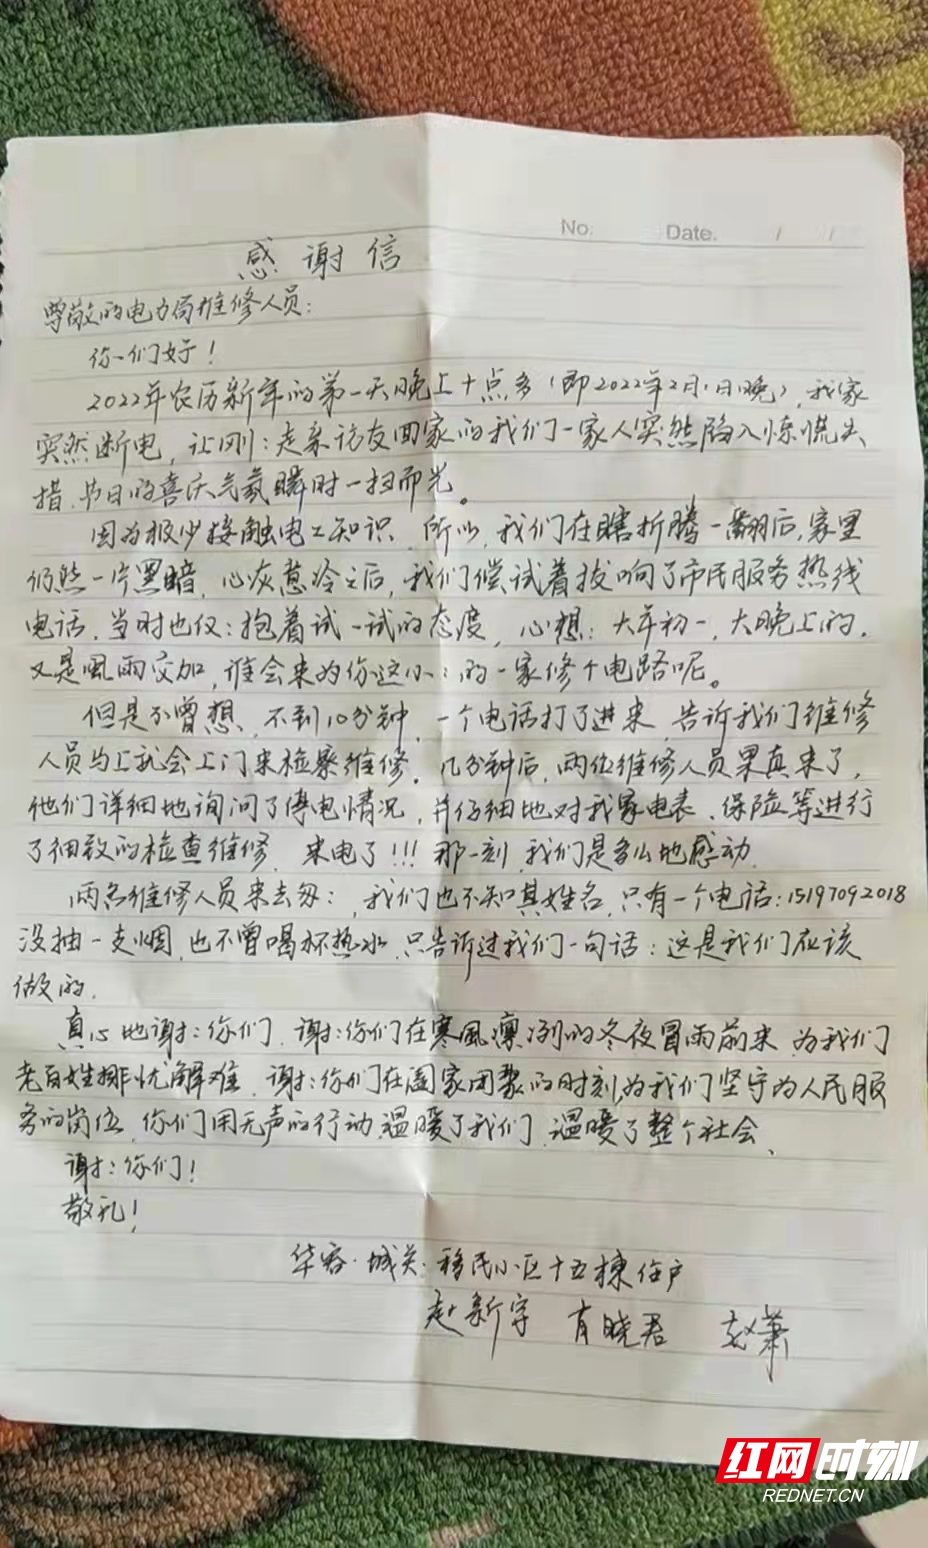 No.
Date. / /
感谢信
尊敬的电力局维修人员：
你们好！
2022年农历新年的第一天晚上十点多（即2022年2月1日晚），我家
突然断电，让刚：走亲访友回家的我们一家人突然陷入惊慌失
措，节日的喜庆气氛瞬时一扫而光。
因为极少接触电工知识，所以，我们在瞎折腾一翻后，家里
仍然一片黑暗，心灰意冷之后，我们偿试着拔响了市民服务热线
电话，当时也仅：抱着试一试的态度，心想：大年初一，大晚上的，
又是風雨交加，谁会来为你这小：的一家修个电路呢。
但是不曾想，不到10分钟，一个电话打了进来，告诉我们维修
人员马上就会上门来检察维修。几分钟后，两位维修人员果真来了，
他们详细地询问了停电情况，并仔细地对我家电表、保险等进行
了细致的检查维修，来电了!!! 那一刻，我们是多么地感动.
两名维修人员来去匆：，我们也不知其姓名，只有一个电话：15197092018
没抽一支烟，也不曾喝杯热水，只告诉过我们一句话：这是我们应该
做的.
真心地谢：你们，谢：你们在寒風凛冽的冬夜冒雨前来，为我们
老百姓排忧解难，谢：你们在阖家团聚的时刻，为我们坚守为人民服
务的岗位，你们用无声的行动，温暖了我们，温暖了整个社会、
谢：你们！
敬礼！
华容·城关·移民小区十五栋住户
赵新宇 肖晓君 赵萧
红网时刻
REDNET.CN